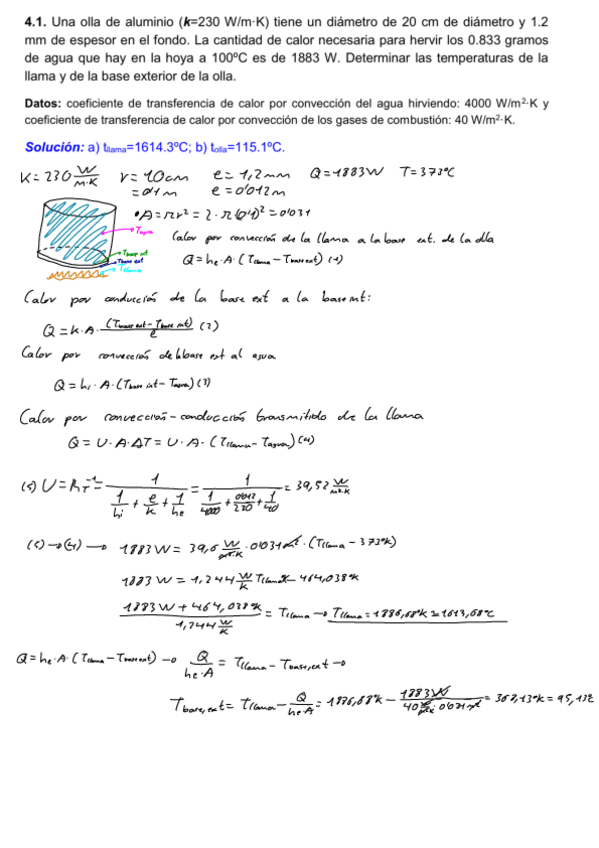 4.1. Una olla de aluminio (k=230 W/m·K) tiene un diámetro de 20 cm de diámetro y 1.2
mm de espesor en el fondo. La cantidad de calor necesaria para hervir los 0.833 gramos
de agua que hay en la hoya a 100ºC es de 1883 W. Determinar las temperaturas de la
llama y de la base exterior de la olla.
Datos: coeficiente de transferencia de calor por convección del agua hirviendo: 4000 W/m²·K y
coeficiente de transferencia de calor por convección de los gases de combustión: 40 W/m²·K.
Solución: a) tllama=1614.3ºC; b) tolla=115.1ºC.
K=230 W/m·K r=10cm e=1,2mm Q=1883W T=373ºC
=0'1m e=0'012m
•A=πr²=2·π(0'1)²=0'031
Tagua
Calor por convección de la llama a la base ext. de la olla
Tbase int
Tbase ext
Tllama
Q=he·A·(Tllama-Tbase ext) (1)
Calor por conducción de la base ext a la base int:
Q=k·A·(Tbase ext-Tbase int)/e (2)
Calor por convección de la base ext al agua
Q=hi·A·(Tbase int-Tagua) (3)
Calor por convección-conducción transmitido de la llama
Q=U·A·ΔT=U·A·(Tllama-Tagua) (4)
(5) U=RT⁻¹= 1/(1/hi + e/k + 1/he) = 1/(1/4000 + 0'012/230 + 1/40) = 39,52 W/m²·K
(5)→(4)→ 1883W = 39,6 W/m²·K ·0'031m²·(Tllama-373ºK)
1883W = 1,244 W/K Tllama - 464,038ºK
(1883W+464,038ºK)/(1,244 W/K) = Tllama → Tllama=1886,68ºK=1613,68ºC
Q=he·A·(Tllama-Tbase ext) → Q/(he·A) = Tllama-Tbase,ext →
Tbase,ext = Tllama - Q/(he·A) = 1886,68ºK - 1883W/(40 W/m²K·0'031m²) = 368,13ºK = 95,13ºC